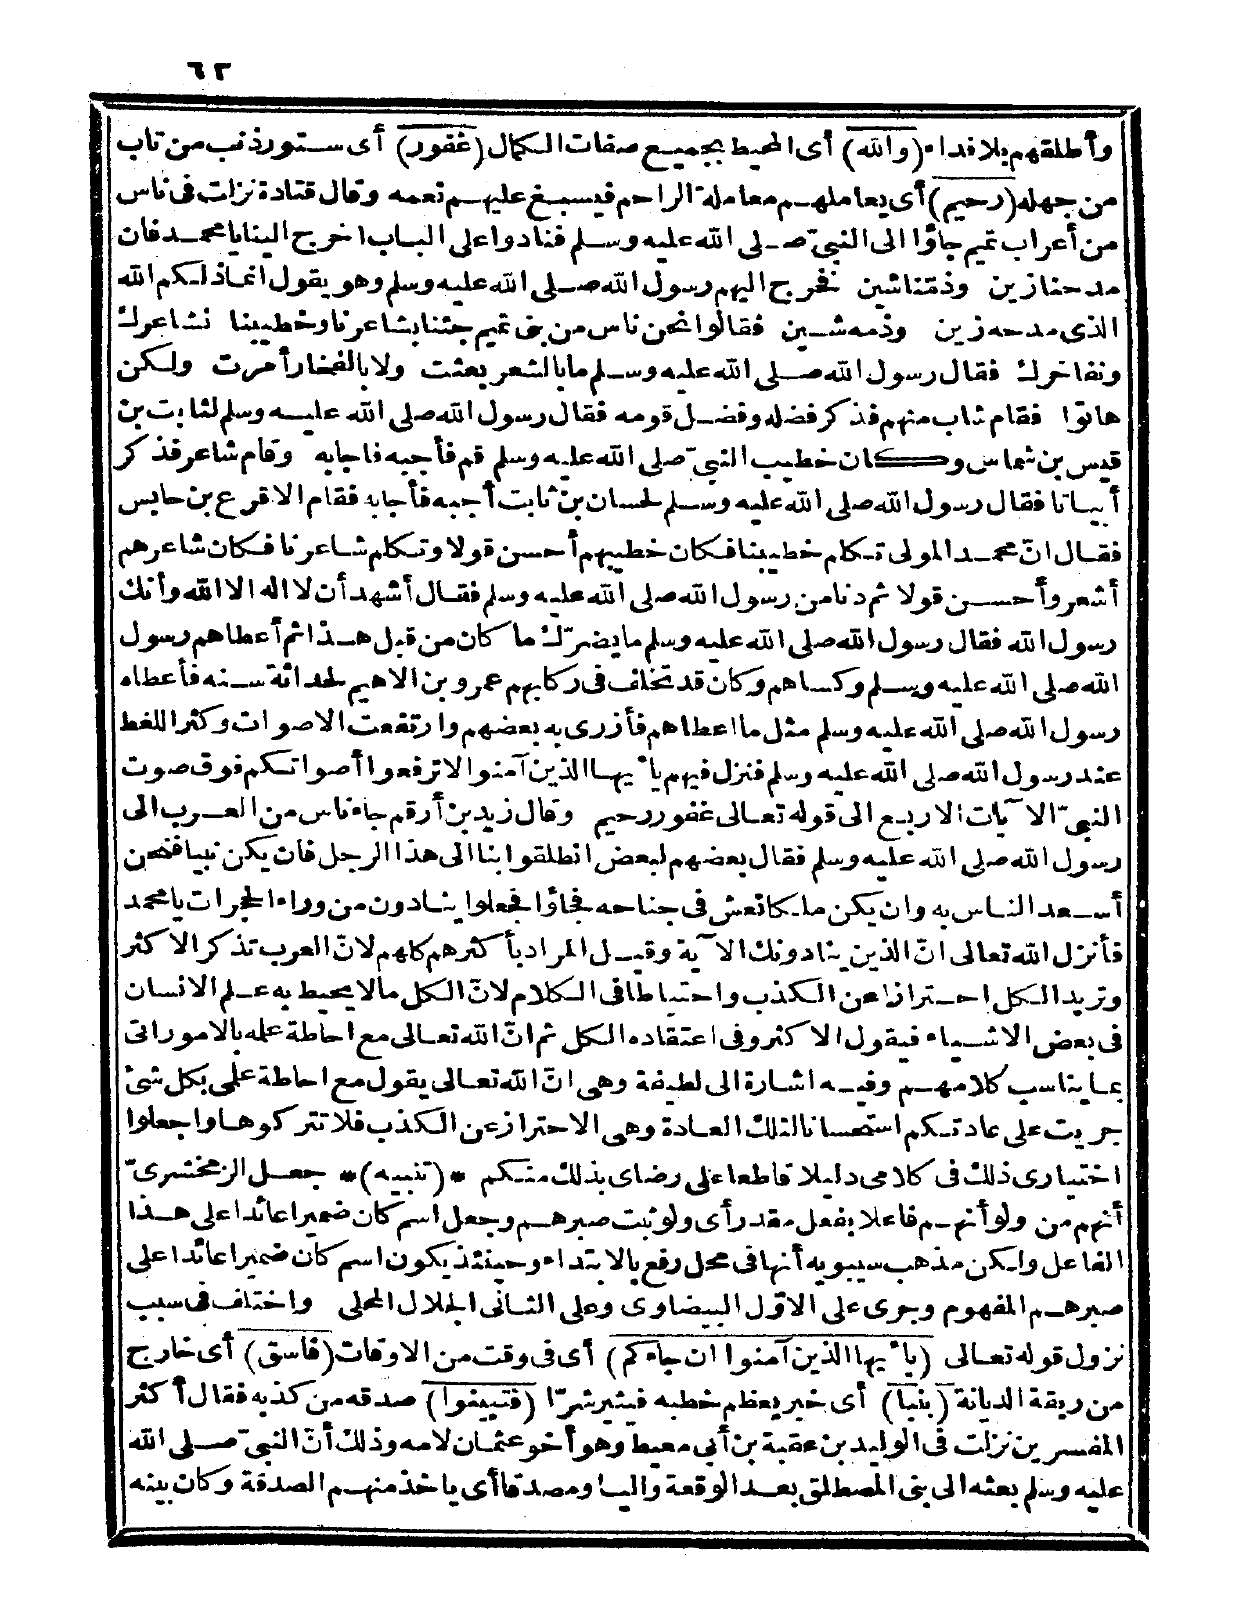 ٦٢
وأطلقهم بلا فداء (والله) أى المحيط بجميع صفات الكمال (غفور) أى ستور ذنب من تاب
من جهله (رحيم) أى يعاملهم معاملة الراحم فيسبغ عليهم نعمه وقال قتادة نزلت فى ناس
من أعراب تميم جاؤا الى النبىّ صلى الله عليه وسلم فنادوا على الباب اخرج الينا يا محمد فان
مدحنا زين وذمّنا شين نفخرج اليهم رسول الله صلى الله عليه وسلم وهو يقول انما ذلكم الله
الذى مدحه زين وذمه شين فقالوا نحن ناس من بنى تميم جئنا بشاعرنا وخطيبنا نشاعرك
ونفاخرك فقال رسول الله صلى الله عليه وسلم ما بالشعر بعثت ولا بالفخار أمرت ولكن
هاتوا فقام شاب منهم فذكر فضله وفضل قومه فقال رسول الله صلى الله عليه وسلم لثابت بن
قيس بن شماس وكان خطيب النبىّ صلى الله عليه وسلم قم فأجبه فاجابه وقام شاعر فذكر
أبياتا فقال رسول الله صلى الله عليه وسلم لحسان بن ثابت أجبه فأجابه فقام الاقرع بن حابس
فقال انّ محمد المولى تكلم خطيبنا فكان خطيبهم أحسن قولا وتكلم شاعرنا فكان شاعرهم
أشعر وأحسن قولا ثم دنا من رسول الله صلى الله عليه وسلم فقال أشهد أن لا اله الا الله وأنك
رسول الله فقال رسول الله صلى الله عليه وسلم ما يضرّك ما كان من قبل هذا ثم أعطاهم رسول
الله صلى الله عليه وسلم وكساهم وكان قد تخلف فى ركابهم عمرو بن الاهيم لحداثة سنه فأعطاه
رسول الله صلى الله عليه وسلم مثل ما اعطاهم فأزرى به بعضهم وارتفعت الاصوات وكثر اللغط
عند رسول الله صلى الله عليه وسلم فنزل فيهم يأيها الذين آمنوا لا ترفعوا أصواتكم فوق صوت
النبىّ الآيات الاربع الى قوله تعالى غفور رحيم وقال زيد بن أرقم جاء ناس من العرب الى
رسول الله صلى الله عليه وسلم فقال بعضهم لبعض انطلقوا بنا الى هذا الرجل فان يكن نبيا فنحن
أسعد الناس به وان يكن ملكا نعش فى جناحه فجاؤا فجعلوا ينادون من وراء الحجرات يا محمد
فأنزل الله تعالى انّ الذين ينادونك الآية وقيل المراد بأكثرهم كلهم لانّ العرب تذكر الاكثر
وتريد الكل احترازا عن الكذب واحتياطا فى الكلام لانّ الكل مما لا يحيط به علم الانسان
فى بعض الاشياء فيقول الاكثر وفى اعتقاده الكل ثم انّ الله تعالى مع احاطة علمه بالامور اتى
بما يناسب كلامهم وفيه اشارة الى لطيفة وهى انّ الله تعالى يقول مع احاطة علمى بكل شئ
جريت على عادتكم استحسانا لتلك العادة وهى الاحتراز عن الكذب فلا تتركوها واجعلوا
اختيارى ذلك فى كلامى دليلا قاطعا على رضاى بذلك منكم * (تنبيه) * جعل الزمخشرىّ
أنهم من ولو أنهم فاعلا بفعل مقدر أى ولو ثبت صبرهم وجعل اسم كان ضميرا عائدا على هذا
الفاعل ولكن مذهب سيبويه أنها فى محل رفع بالابتداء وحينئذ يكون اسم كان ضميرا عائدا على
صبرهم المفهوم وجرى على الاوّل البيضاوى وعلى الثانى الجلال المحلى واختلف فى سبب
نزول قوله تعالى (يأيها الذين آمنوا ان جاءكم) أى فى وقت من الاوقات (فاسق) أى خارج
من ربقة الديانة (بنبا) أى خبر يعظم خطبه فيثير شرّا (فتبينوا) صدقه من كذبه فقال أكثر
المفسرين نزلت فى الوليد بن عقبة بن أبى معيط وهو أخو عثمان لامه وذلك أنّ النبىّ صلى الله
عليه وسلم بعثه الى بنى المصطلق بعد الوقعة واليا ومصدقا أى ياخذ منهم الصدقة وكان بينه